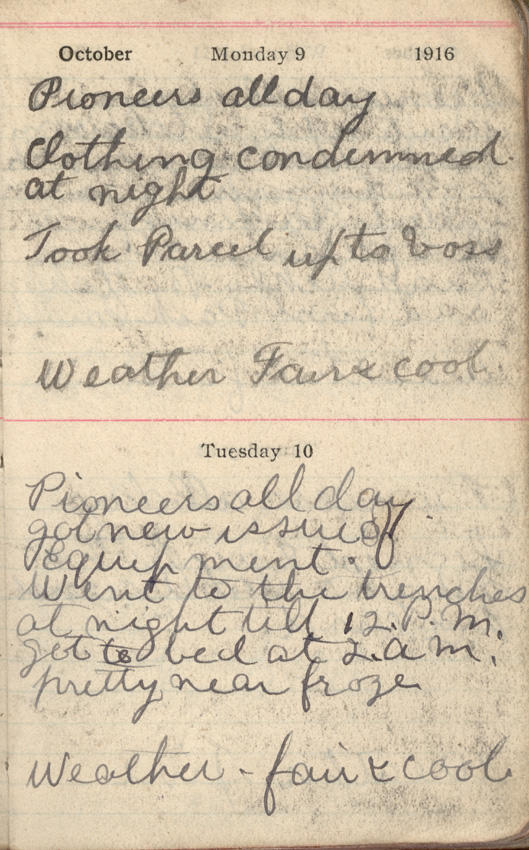 October Monday 9 1916
Pioneers all day
Clothing condemned.
at night
Took Parcel up to Voss
Weather Fair & cool.
Tuesday 10
Pioneers all day
got new issue of
Equipment.
Went to the trenches
at night till 12.P.M.
got to bed at 2.a.m.
pretty near froze
Weather - fair & cool.